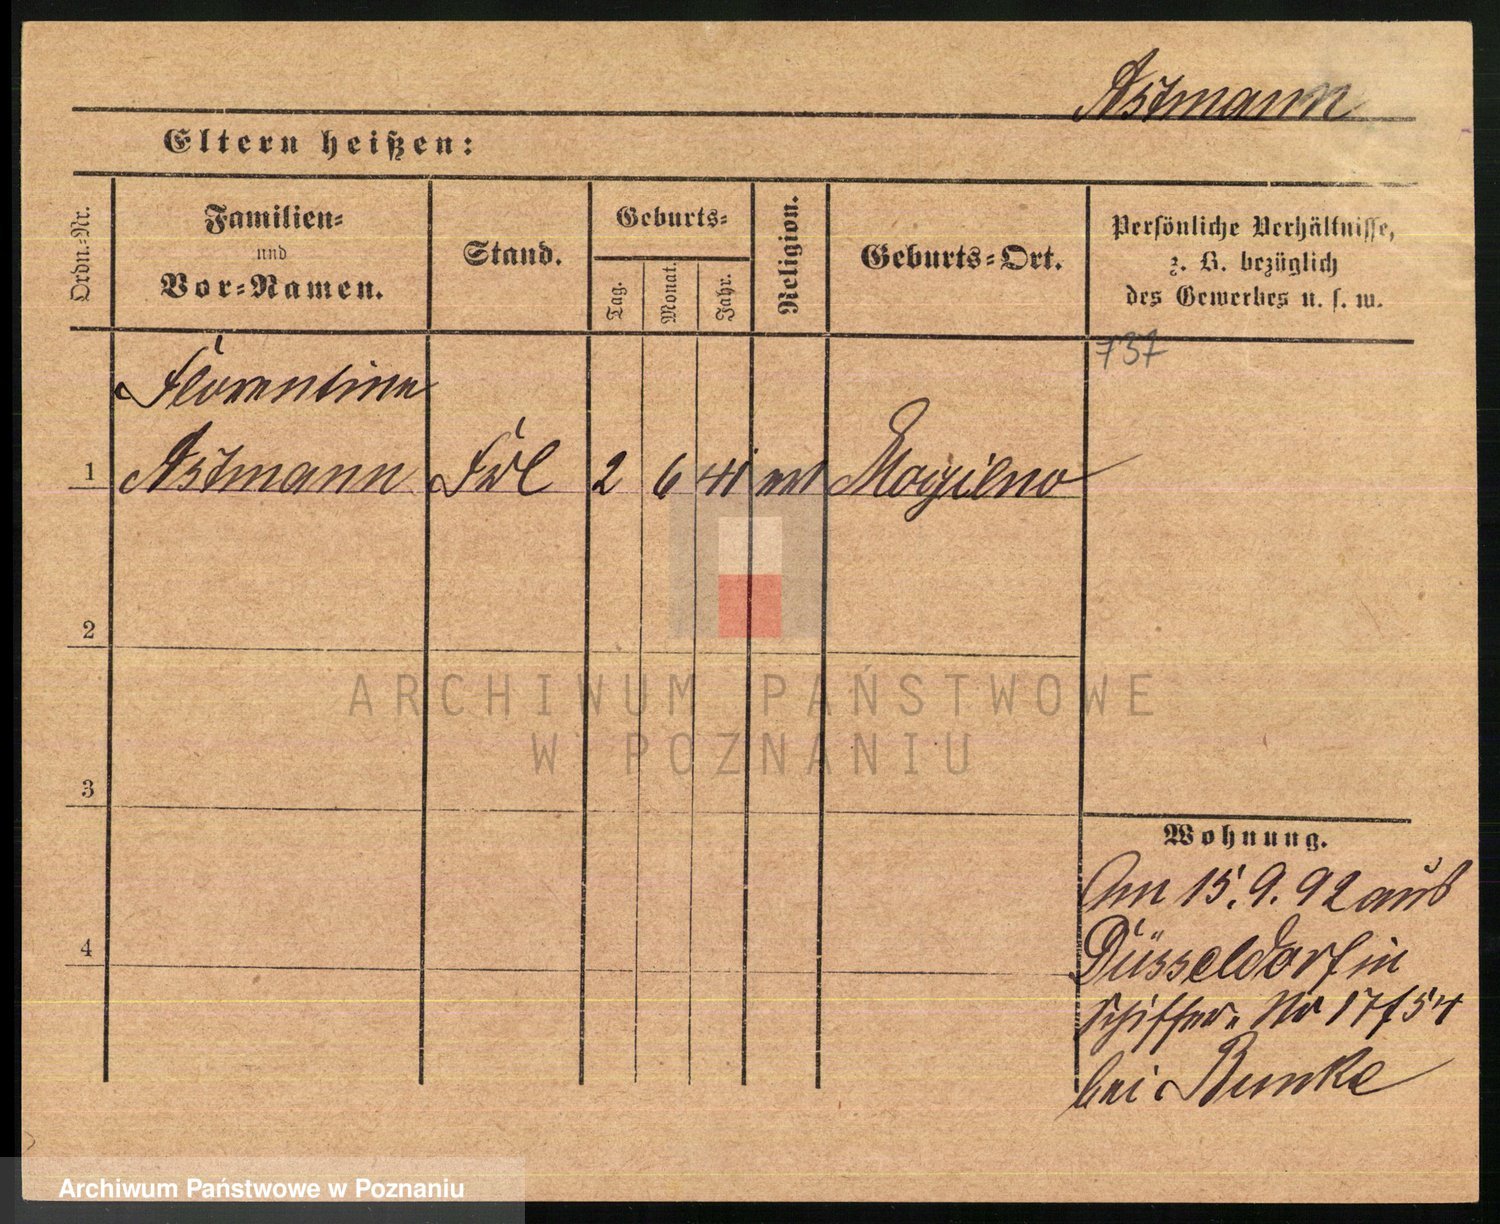 Astmann
Eltern heißen:
Ordn.-Nr.
Familien-
und
Vor-Namen.
Stand.
Geburts-
Tag.
Monat.
Jahr.
Religion.
Geburts-Ort.
Persönliche Verhältnisse,
z. B. bezüglich
des Gewerbes u. s. w.
737
Florentine
1 Astmann Frl 2 6 41 ev Mogilno
2
3
4
Wohnung.
Am 15.9.92 aus
Düsseldorf in
Schiffer. Nr 17 f 54
bei Bunke
ARCHIWUM PAŃSTWOWE
W POZNANIU
Archiwum Państwowe w Poznaniu